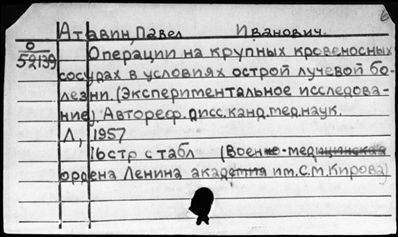 Атавин, Павел Иванович.
О
52139
Операции на крупных кровеносных
сосудах в условиях острой лучевой бо-
лезни. (Экспериментальное исследова-
ние). Автореф. дисс. канд. мед. наук.
Л, 1957
16 стр с табл (Военно-медицинская
ордена Ленина академия им. С.М. Кирова)